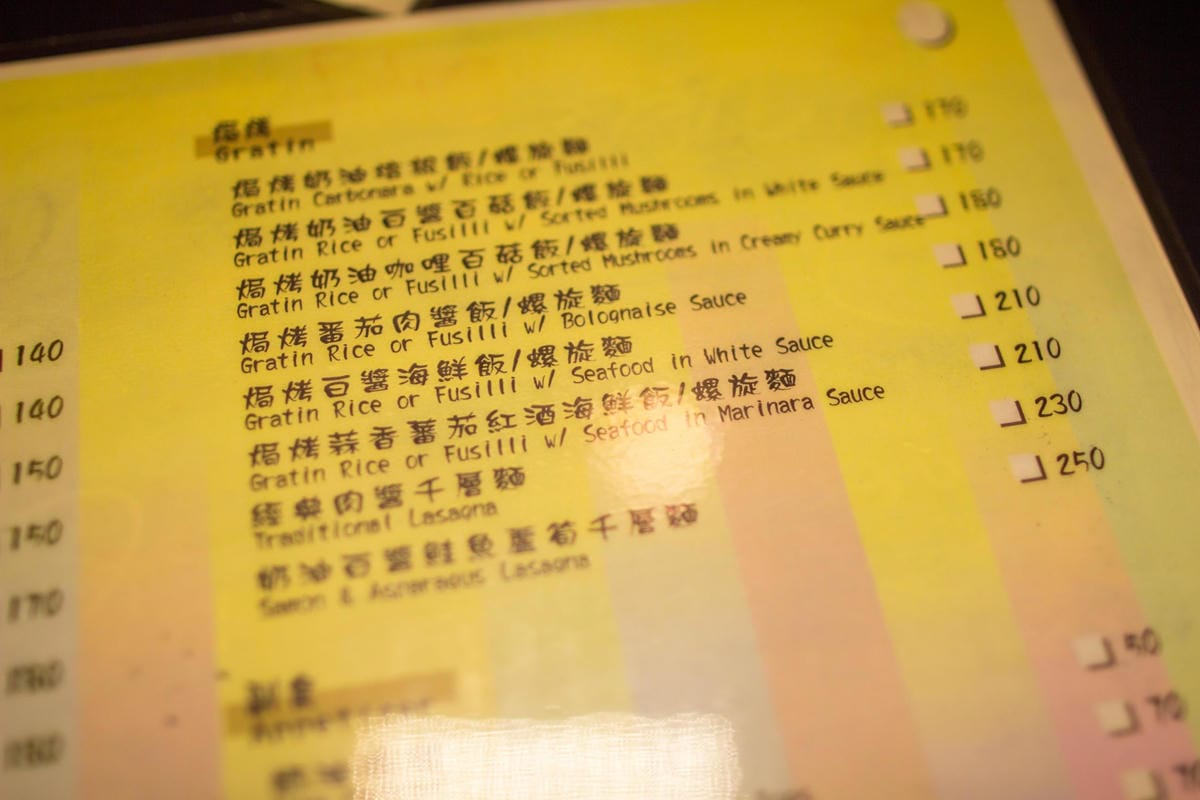 焗烤
Gratin
焗烤奶油培根飯/螺旋麵 170
Gratin Carbonara w/ Rice or Fusilli
焗烤奶油白醬百菇飯/螺旋麵 170
Gratin Rice or Fusilli w/ Sorted Mushrooms in White Sauce
焗烤奶油咖哩百菇飯/螺旋麵 180
Gratin Rice or Fusilli w/ Sorted Mushrooms in Creamy Curry Sauce
焗烤番茄肉醬飯/螺旋麵 180
Gratin Rice or Fusilli w/ Bolognaise Sauce
焗烤白醬海鮮飯/螺旋麵 210
Gratin Rice or Fusilli w/ Seafood in White Sauce
焗烤蒜香蕃茄紅酒海鮮飯/螺旋麵 210
Gratin Rice or Fusilli w/ Seafood in Marinara Sauce
經典肉醬千層麵 230
Traditional Lasagna
奶油白醬鮭魚蘆筍千層麵 250
Samon & Asparagus Lasagna
140
140
150
150
170
180
180
50
70